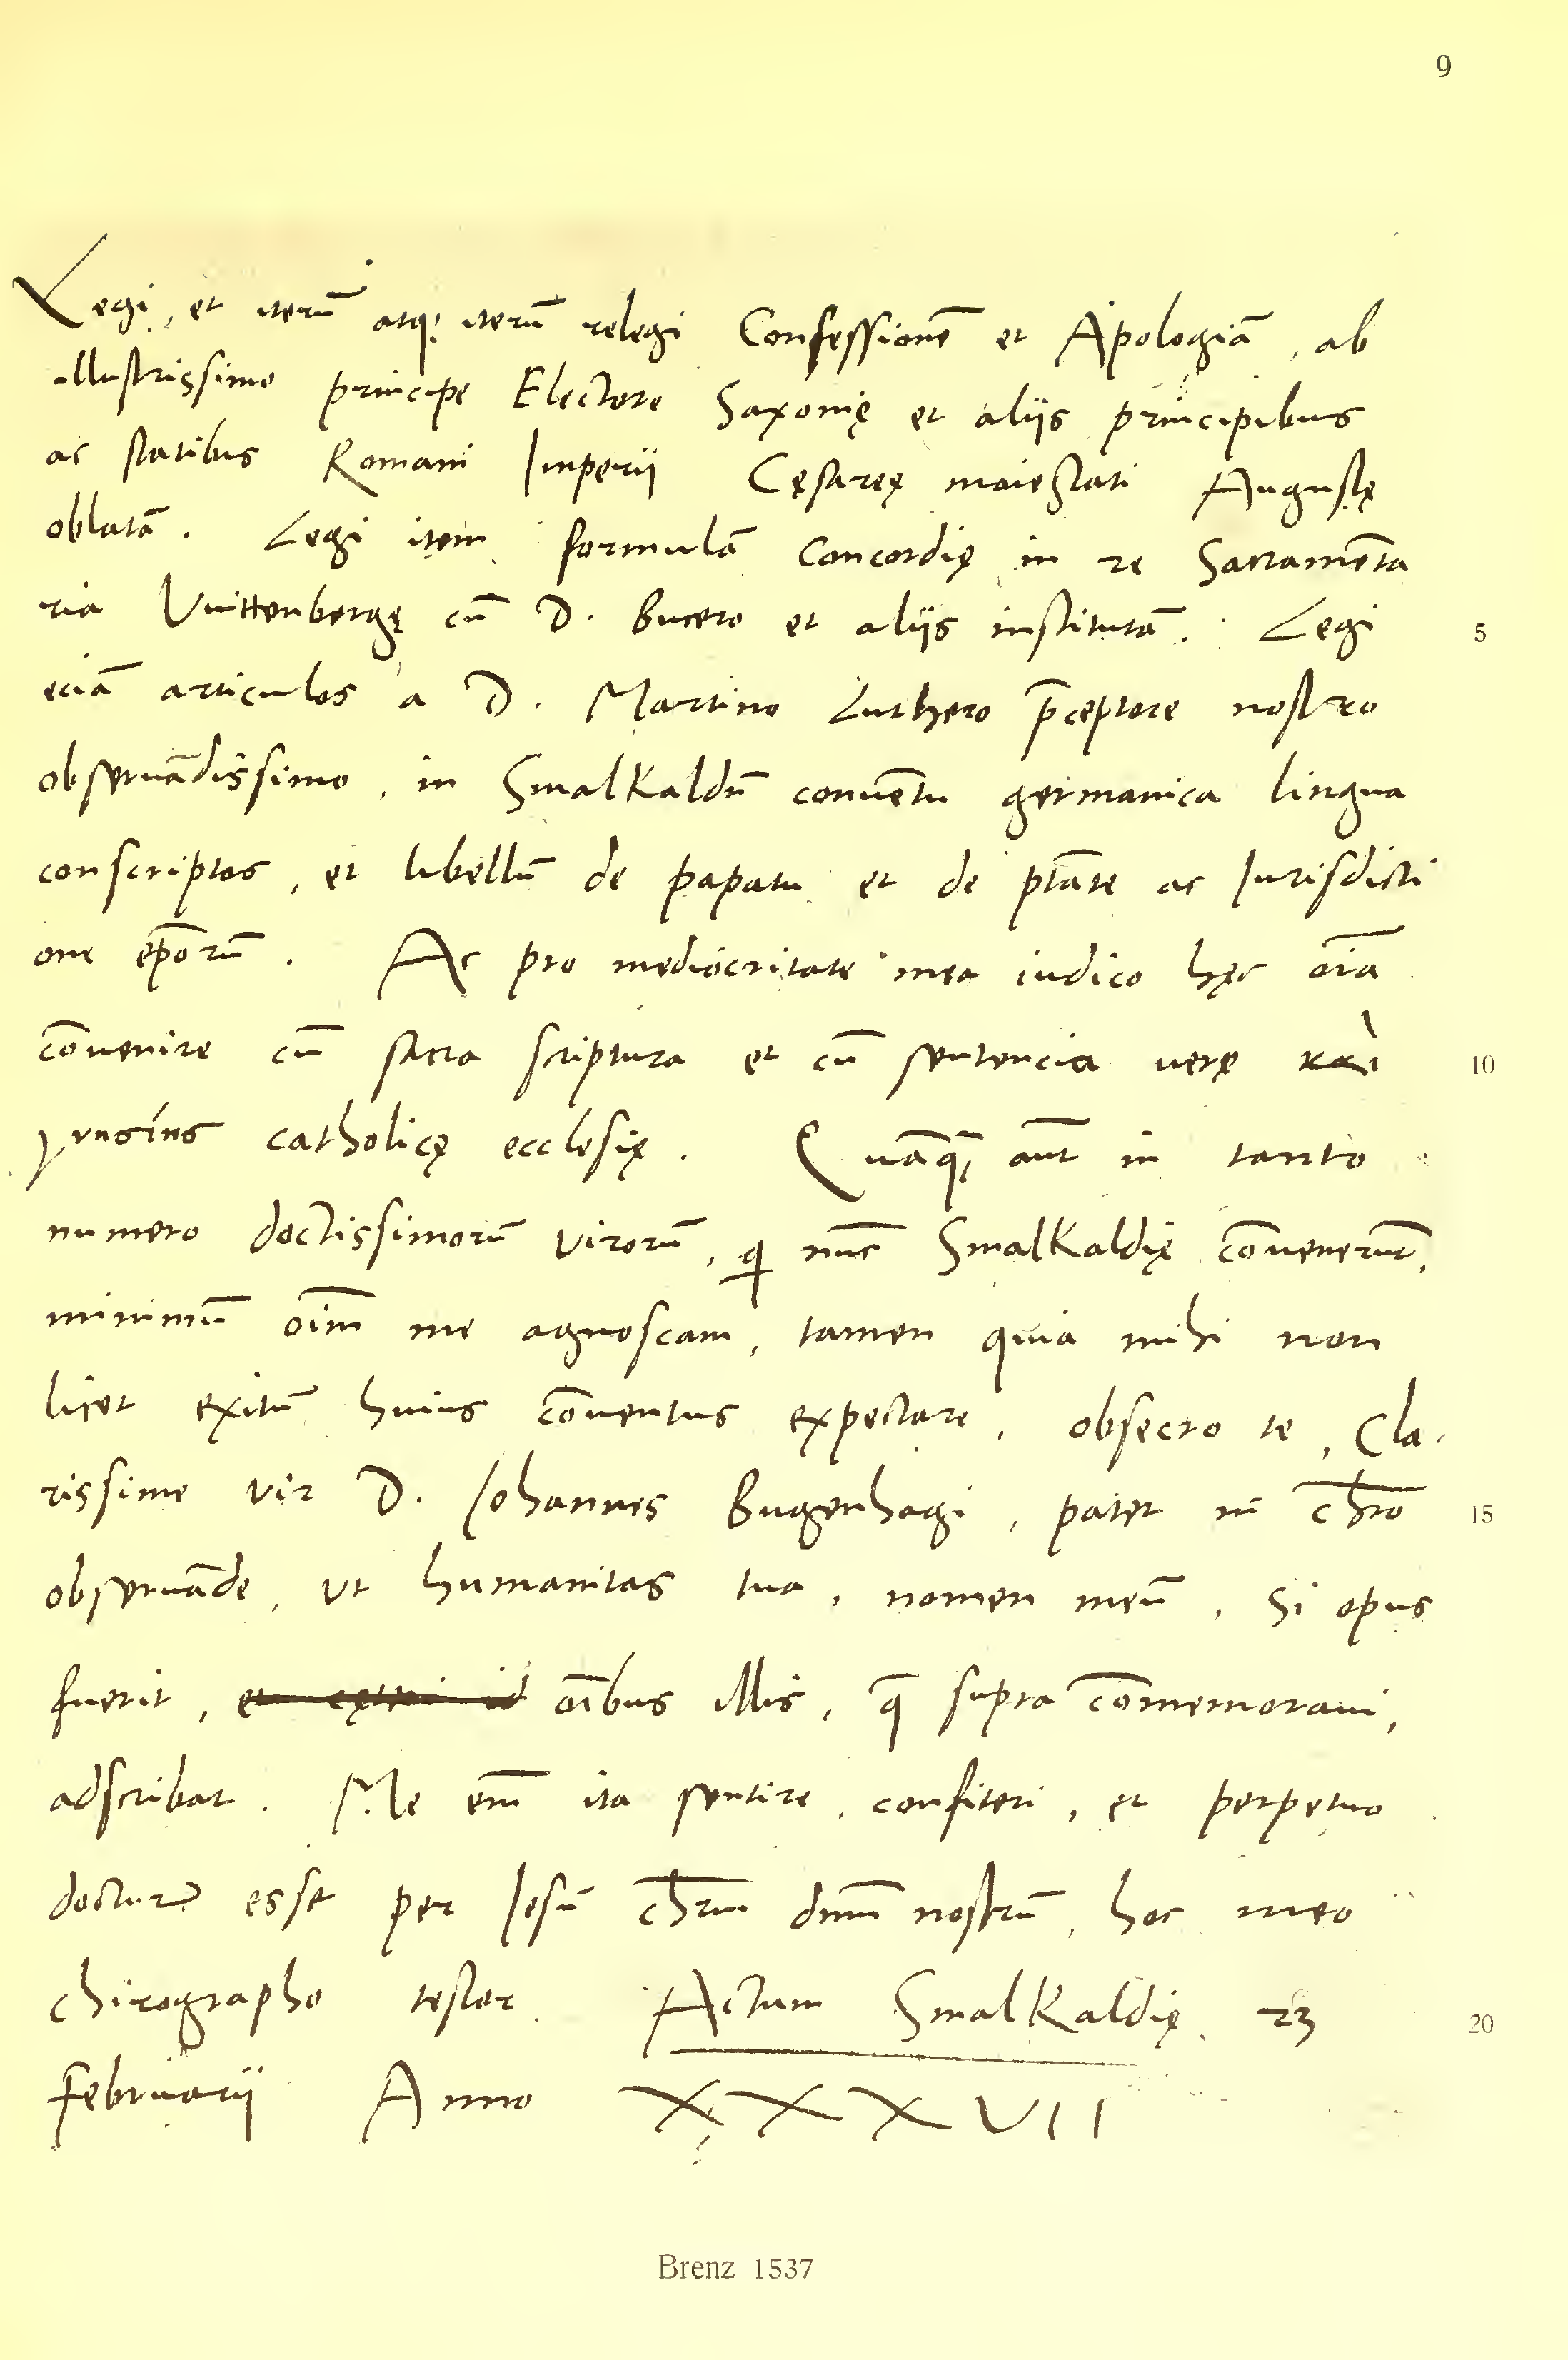 9
Legi, et iterū atq; iterū relegi Confessionē et Apologiā, ab
illustrissimo principe Electore Saxonię et aliis principibus
ac statibus Romani Imperii Cęsareę maiestati Augustę
oblatā. Legi item formulā Concordię in re Sacramēta
ria Vuittenbergę cū D. Bucero et aliis institutā. Legi
5
eciā articulos a D. Martino Luthero p̄ceptore nostro
obseruādissimo, in Smalkaldn̄ conuētu germanica lingua
conscriptos, et libellū de papatu et de ptāte ac Iurisdicti
one ep̄orū. Ac pro mediocritate mea iudico hęc oīa
cōuenire cū sacra scriptura et cū sentencia uerę καὶ
10
γνησίης catholicę ecclesię. Quāq̄ aūt in tanto
numero doctissimorū virorū, qi nūc Smalkaldię cōuenerūt,
minimū oīm me agnoscam, tamen quia mihi non
licet exitū huius cōuentus expectare, obsecro te, Cla-
rissime vir D. Iohannes Bugenhagi, pater in chr̄o
15
obseruāde, ut humanitas tua, nomen meū, si opus
fuerit, oībus illis, q̄ supra cōmemoraui,
adscribat. Me em̄ ita sentire, confiteri, et perpetuo
docturū esse per Iesū chr̄m dn̄m nostrū, hoc meo
chirographo testor. Actum Smalkaldię. 23
20
Februarii Anno XXXVII
Brenz 1537